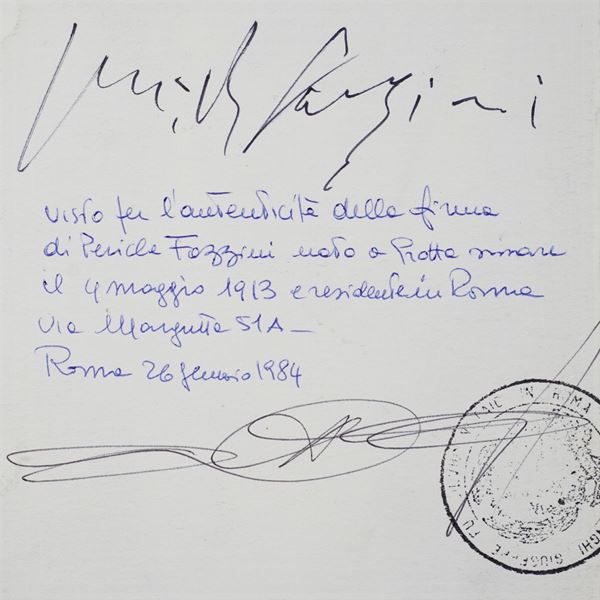 Pericle Fazzini
visto per l'autenticità della firma
di Pericle Fazzini nato a Grottammare
il 4 maggio 1913 e residente in Roma
via Margutta 51A -
Roma 26 gennaio 1984
IN ROMA
GIUSEPPE FU